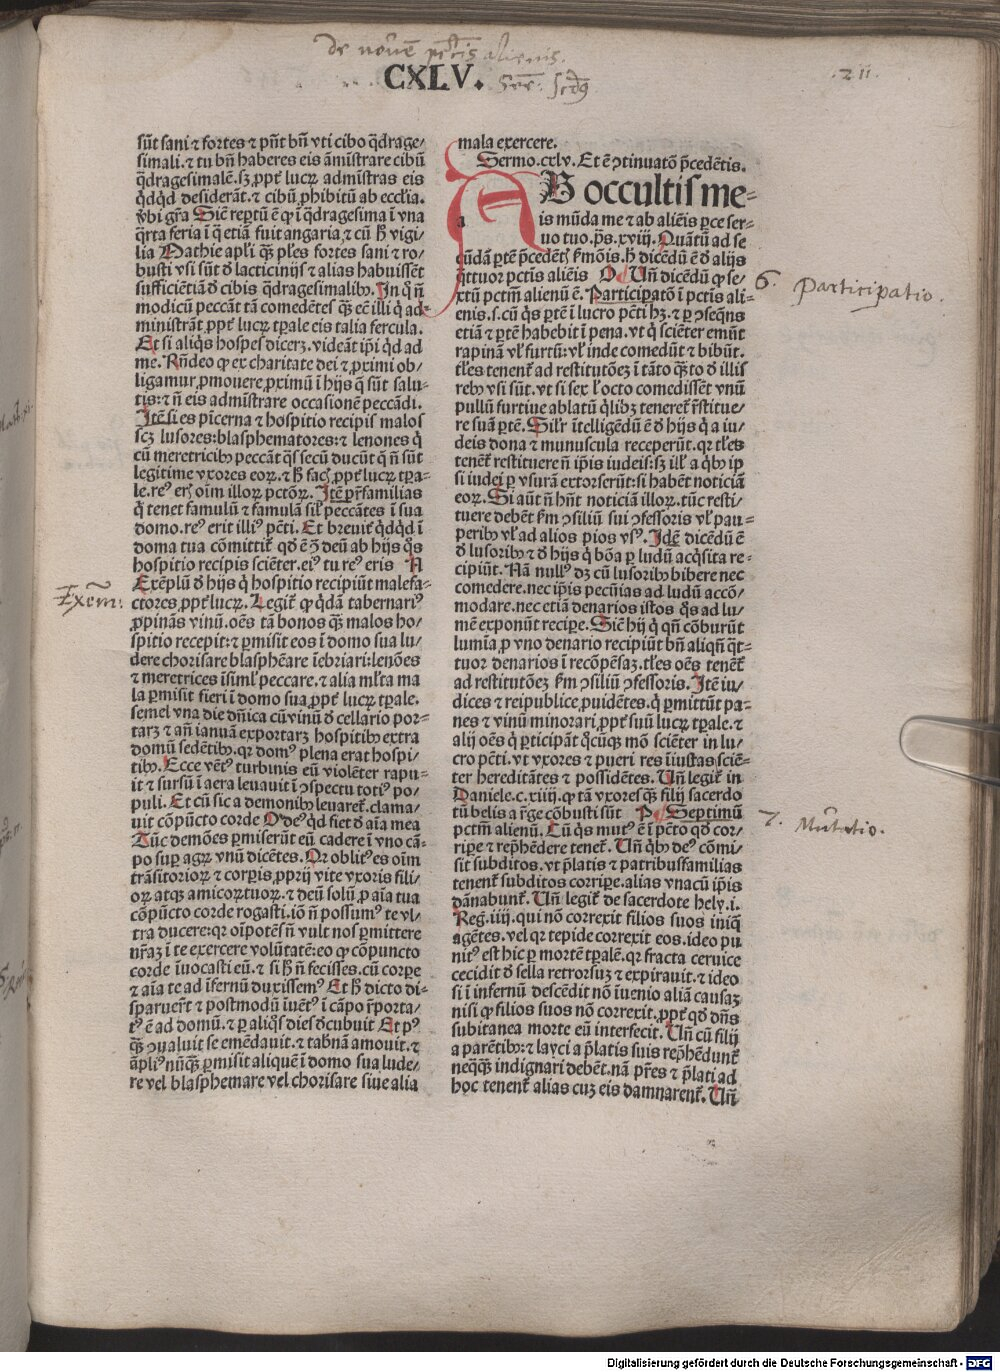 de novē pctis alienis.
CXLV.
.211.
sūt sani ⁊ fortes ⁊ pn̄t bn̄ vti cibo q̄drage/
simali.⁊ tu bn̄ haberes eis āmistrare cibū
q̄dragesimalē.sꝫ ꝓpt̄ lucꝝ admīstras eis
q̄dq̄d desiderāt.⁊ cibū ꝓhibitū ab ecclīa.
Ubi gr̄a Sic̄ reptū ē ꝙ ī q̄dragesima ī vna
q̄rta feria ī q̄ etiā fuit angaria.⁊ cū h̄ vigi/
lia Mathie apl̄i q̄ꝫ ples fortes sani ⁊ ro/
busti vsi sūt ð lacticinijs ⁊ alias habuissēt
sufficiētiā ð cibis q̄dragesimalibꝰ. In q̄ n̄
modicū peccāt tā comedētes q̄ꝫ eē illi q̄ ad
ministrāt ꝓpt̄ lucꝝ tꝑale eis talia fercula.
Et si aliq̄s hospes dicerꝫ.videāt ip̄i q̄d ad
me. Rn̄deo ꝙ ex charitate dei ⁊ ꝓximi ob/
ligamur ꝓmouere ꝓximū ī hijs q̄ sūt salu/
tis:⁊ n̄ eis admīstrare occasionē peccādi.
Itē si es pīcerna ⁊ hospitio recipis malos
scꝫ lusores:blasphematores:⁊ lenones q̄
cū meretricibꝰ peccāt q̄s secū ducūt q̄ n̄ sūt
legitime vxores eoꝝ.⁊ h̄ facꝫ ꝓpt̄ lucꝝ tꝑa/
le.reꝰ erꝫ oīm illoꝝ pctōꝝ. Itē pr̄familias
q̄ tenet famulū ⁊ famulā sil̄ peccātes ī sua
domo.reꝰ erit illiꝰ pc̄ti. Et breuit̄ q̄dq̄d ī
doma tua cōmittit̄ qð ē ꝯ̄ deū ab hijs q̄s
hospitio recipis sciēter.eiꝰ tu reꝰ eris N
Exēplū ð hijs q̄ hospitio recipiūt malefa/
ctores ꝓpt̄ lucꝝ. Legit̄ ꝙ q̄dā tabernariꝰ
ꝓpinās vinū.oēs tā bonos q̄ꝫ malos ho/
spitio recepit:⁊ ꝑmisit eos ī domo sua lu/
dere chorisare blasphēare īebriari:lenōes
⁊ meretrices īsiml̄ peccare.⁊ alia ml̄ta ma
la ꝑmisit fieri ī domo sua ꝓpt̄ lucꝝ tꝑale.
semel vna die dn̄ica cū vinū ð cellario por/
tarꝫ ⁊ an̄ ianuā exportarꝫ hospitibꝰ extra
domū sedētibꝰ.qr domꝰ plena erat hospi/
tibꝰ. Ecce vētꝰ turbinis eū violēter rapu/
it ⁊ sursū ī aera leuauit ī ꝯspectu totiꝰ po/
puli. Et cū sic a demonibꝰ leuaret̄.clama/
uit cōpūcto corde O deꝰ q̄d fiet ð aīa mea
Tūc demōes ꝑmiserūt eū cadere ī vno cā/
po suꝑ agrꝝ vnū dicētes. Qr oblitꝰ es oīm
trāsitorioꝝ ⁊ corꝑis ꝓprij vite vxoris fili/
oꝝ atqꝫ amicoꝝ tuoꝝ.⁊ deū solū ꝓ aīa tua
cōpūcto corde rogasti.iō n̄ possumꝰ te vl/
tra ducere:qr oīpotēs n̄ vult nos ꝑmittere
nr̄aꝫ ī te exercere volūtatē:eo ꝙ cōpuncto
corde īuocasti eū.⁊ si h̄ n̄ fecisses.cū corꝑe
⁊ aīa te ad īfernū duxissemꝰ Et h̄ dicto di/
sparuer̄t ⁊ postmodū īuētꝰ ī cāpo rꝑorta/
tꝰ ē ad domū.⁊ ꝑ aliq̄s dies ðcubuit Et pꝰ
q̄ꝫ ꝯualuit se emēdauit.⁊ tab̄nā amouit.⁊
āpliꝰ nūq̄ꝫ ꝑmisit aliquē ī domo sua lude/
re vel blasphemare vel chorisare siue alia
Exēm:
mala exercere.
Sermo.cxlv. Et ē ꝯtinuatō p̄cedētis.
AB occultis me-
a
is mūda me ⁊ ab aliēis ꝑce ser/
uo tuo.ps̄.xviij. Quātū ad se
cūdā ꝑtē p̄cedēt̄ ẜmōis.h̄ dicēdū ē ð alijs
q̄ttuor pctis aliēis O Un̄ dicēdū ꝙ se/
xtū pctm̄ alienū ē. Participatō ī pctis ali/
enis.s.cū q̄s ꝑtē ī lucro pc̄ti hꝫ.⁊ ꝑ ꝯseq̄ns
etiā ⁊ ꝑtē habebit ī pena.vt q̄ sciēter emūt
rapinā vl̄ furtū:vl̄ inde comedūt ⁊ bibūt.
tl̄es tenent̄ ad restitutōeꝫ ī tāto q̄ꝫto ð illis
rebꝰ vsi sūt.vt si sex l̄ octo comedissēt vnū
pullū furtiue ablatū q̄libꝫ teneret̄ r̄stitue/
re suā ꝑtē. Silr̄ ītelligēdū ē ð hijs q̄ a iu/
deis dona ⁊ munuscula receperūt.qr tl̄es
tenēt̄ restituere n̄ ip̄is iudeis:sꝫ ill̄ a q̄bꝰ ip
si iudei ꝑ vsurā extorserūt:si habēt noticiā
eoꝝ. Si aūt n̄ hn̄t noticiā illoꝝ.tūc resti/
tuere debēt ẜm ꝯsiliū sui ꝯfessoris vl̄ pau/
peribꝰ vl̄ ad alios pios vsꝰ. Idē dicēdū ē
ð lusoribꝰ ⁊ ð hijs q̄ bōa ꝑ ludū acq̄sita re/
cipiūt. Nā nullꝰ dꝫ cū lusoribꝰ bibere nec
comedere.nec ip̄is pecūias ad ludū accō/
modare.nec etiā denarios istos q̄s ad lu/
mē exponūt reciꝑe. Sic̄ hij q̄ qn̄ cōburūt
lumīa ꝓ vno denario recipiūt bn̄ aliqn̄ q̄t/
tuor denarios ī recōpēsaꝫ.tl̄es oēs tenēt̄
ad restitutōeꝫ ẜm ꝯsiliū ꝯfessoris. Itē iu/
dices ⁊ reipublice ꝓuidētes.q̄ ꝑmittūt pa/
nes ⁊ vinū minorari ꝓpt̄ suū lucꝝ tꝑale.⁊
alij oēs q̄ ꝑticipāt q̄cūqꝫ mō sciēter in lu/
cro pc̄ti.vt vxores ⁊ pueri res īiustas sciē/
ter hereditātes ⁊ possidētes. Un̄ legit̄ in
Daniele.c.xiiij.ꝙ tā vxores q̄ꝫ filij sacerdo
tū belis a r̄ge cōbusti sūt P Septimū
pctm̄ alienū. Cū q̄s mutꝰ ē ī pctō qð cor/
riꝑe ⁊ rep̄hēdere tenet̄. Un̄ q̄bꝰ deꝰ cōmi/
sit subditos.vt p̄latis ⁊ patribusfamilias
tenent̄ subditos corriꝑe.alias vnacū ip̄is
dānabunt̄. Un̄ legit̄ de sacerdote hely.i.
Reḡ.iiij.qui nō correxit filios suos iniq̄
agētes.vel qr tepide correxit eos.ideo pu
nitꝰ est hic ꝑ mortē tꝑalē.qr fracta ceruice
cecidit ð sella retrorsuꝫ ⁊ expirauit.⁊ ideo
si ī infernū descēdit nō īuenio aliā causaꝫ
nisi ꝙ filios suos nō correxit.ꝓpt̄ qð dn̄s
subitanea morte eū interfecit. Un̄ cū filij
a parētibꝰ:⁊ layci a p̄latis suis rep̄hēdunt̄
neq̄q̄ꝫ indignari debēt.nā pr̄es ⁊ p̄lati ad
hoc tenent̄ alias cuꝫ eis damnarent̄. Un̄
6. Participatio.
7. Mutatio.
Digitalisierung gefördert durch die Deutsche Forschungsgemeinschaft - DFG